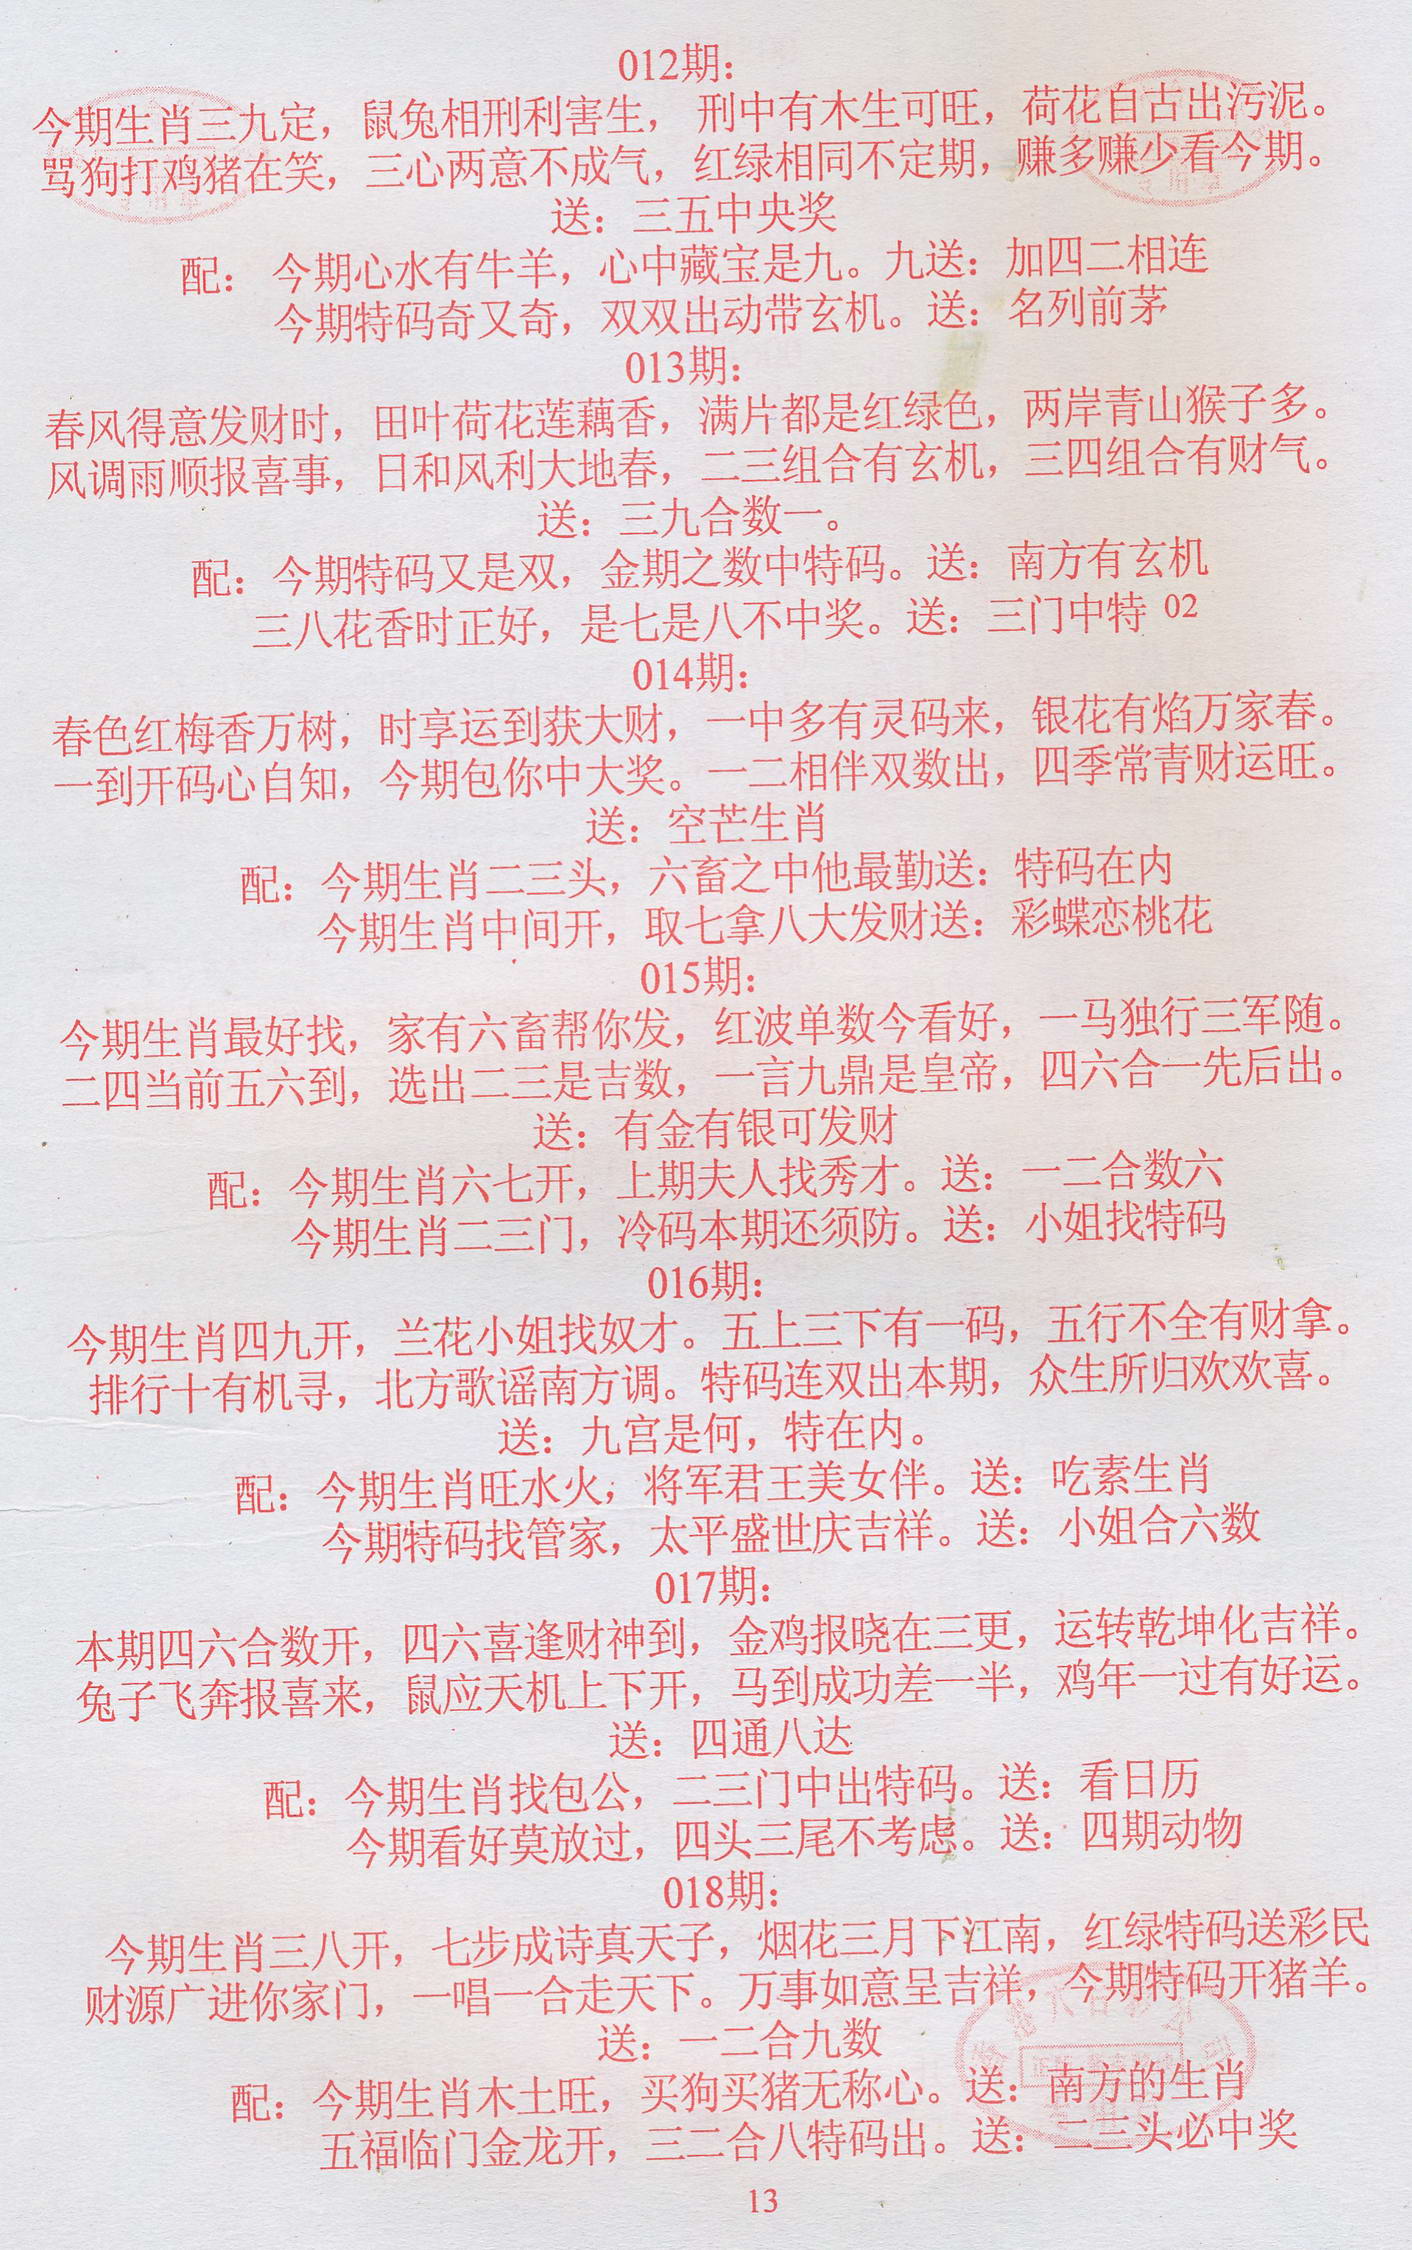 012期：
今期生肖三九定，鼠兔相刑利害生，刑中有木生可旺，荷花自古出污泥。
骂狗打鸡猪在笑，三心两意不成气，红绿相同不定期，赚多赚少看今期。
送：三五中央奖
配：今期心水有牛羊，心中藏宝是九。九送：加四二相连
今期特码奇又奇，双双出动带玄机。送：名列前茅
013期：
春风得意发财时，田叶荷花莲藕香，满片都是红绿色，两岸青山猴子多。
风调雨顺报喜事，日和风利大地春，二三组合有玄机，三四组合有财气。
送：三九合数一。
配：今期特码又是双，金期之数中特码。送：南方有玄机
三八花香时正好，是七是八不中奖。送：三门中特 02
014期：
春色红梅香万树，时享运到获大财，一中多有灵码来，银花有焰万家春。
一到开码心自知，今期包你中大奖。一二相伴双数出，四季常青财运旺。
送：空芒生肖
配：今期生肖二三头，六畜之中他最勤送：特码在内
今期生肖中间开，取七拿八大发财送：彩蝶恋桃花
015期：
今期生肖最好找，家有六畜帮你发，红波单数今看好，一马独行三军随。
二四当前五六到，选出二三是吉数，一言九鼎是皇帝，四六合一先后出。
送：有金有银可发财
配：今期生肖六七开，上期夫人找秀才。送：一二合数六
今期生肖二三门，冷码本期还须防。送：小姐找特码
016期：
今期生肖四九开，兰花小姐找奴才。五上三下有一码，五行不全有财拿。
排行十有机寻，北方歌谣南方调。特码连双出本期，众生所归欢欢喜。
送：九宫是何，特在内。
配：今期生肖旺水火；将军君王美女伴。送：吃素生肖
今期特码找管家，太平盛世庆吉祥。送：小姐合六数
017期：
本期四六合数开，四六喜逢财神到，金鸡报晓在三更，运转乾坤化吉祥。
兔子飞奔报喜来，鼠应天机上下开，马到成功差一半，鸡年一过有好运。
送：四通八达
配：今期生肖找包公，二三门中出特码。送：看日历
今期看好莫放过，四头三尾不考虑。送：四期动物
018期：
今期生肖三八开，七步成诗真天子，烟花三月下江南，红绿特码送彩民
财源广进你家门，一唱一合走天下。万事如意呈吉祥，今期特码开猪羊。
送：一二合九数
配：今期生肖木土旺，买狗买猪无称心。送：南方的生肖
五福临门金龙开，三二合八特码出。送：二三头必中奖
13